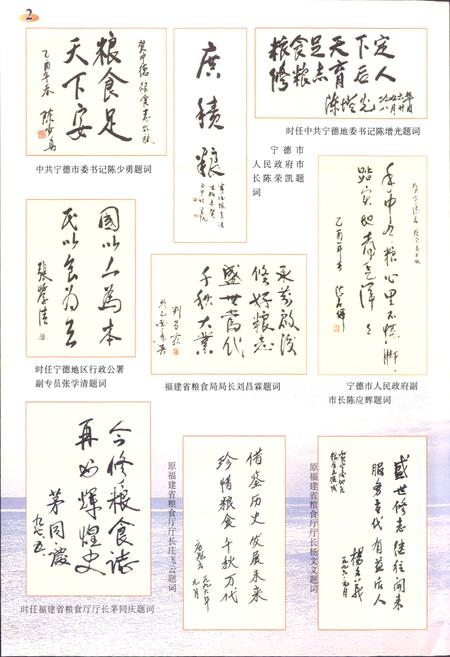 2
粮食足
天下安
乙酉年春
中共宁德市委书记陈少勇题词
广积粮
宁德市
人民政府市
长陈荣凯题
词
粮食足天下定
修粮志育后人
时任中共宁德地委书记陈增光题词
国以人为本
民以食为天
张学清
时任宁德地区行政公署
副专员张学清题词
承前启后
修好粮志
盛世当代
千秋大业
福建省粮食局局长刘昌霖题词
手中有粮心里不慌脚
踏实地喜气洋洋
乙酉年春
宁德市人民政府副
市长陈应辉题词
今修粮食志
再书辉煌史
茅同庆
时任福建省粮食厅厅长茅同庆题词
借鉴历史发展未来
珍惜粮食千秋万代
原福建省粮食厅厅长庄飞云题词
盛世修志继往开来
服务当代有益后人
杨文义
原福建省粮食厅厅长杨文义题词